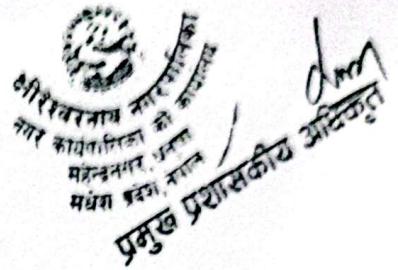 क्षीरेश्वरनाथ नगरपालिका
नगर कार्यपालिकाको कार्यालय
महेन्द्रनगर, धनुषा
मधेश प्रदेश, नेपाल
प्रमुख प्रशासकीय अधिकृत